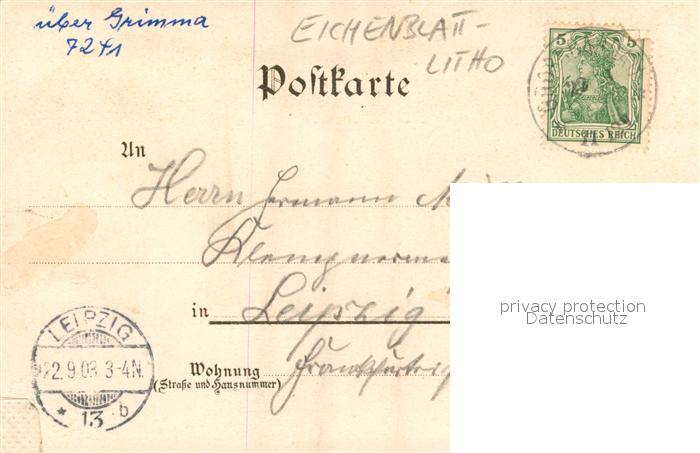 über Grimma
7241
EICHENBLATT-
LITHO
Postkarte
5 5
DEUTSCHES REICH
An
Herrn Hermann
Klempnerm
in Leipzig
Wohnung
(Straße und Hausnummer)
Frankfurter
LEIPZIG
22.9.03 3-4N.
* 13 b
privacy protection
Datenschutz